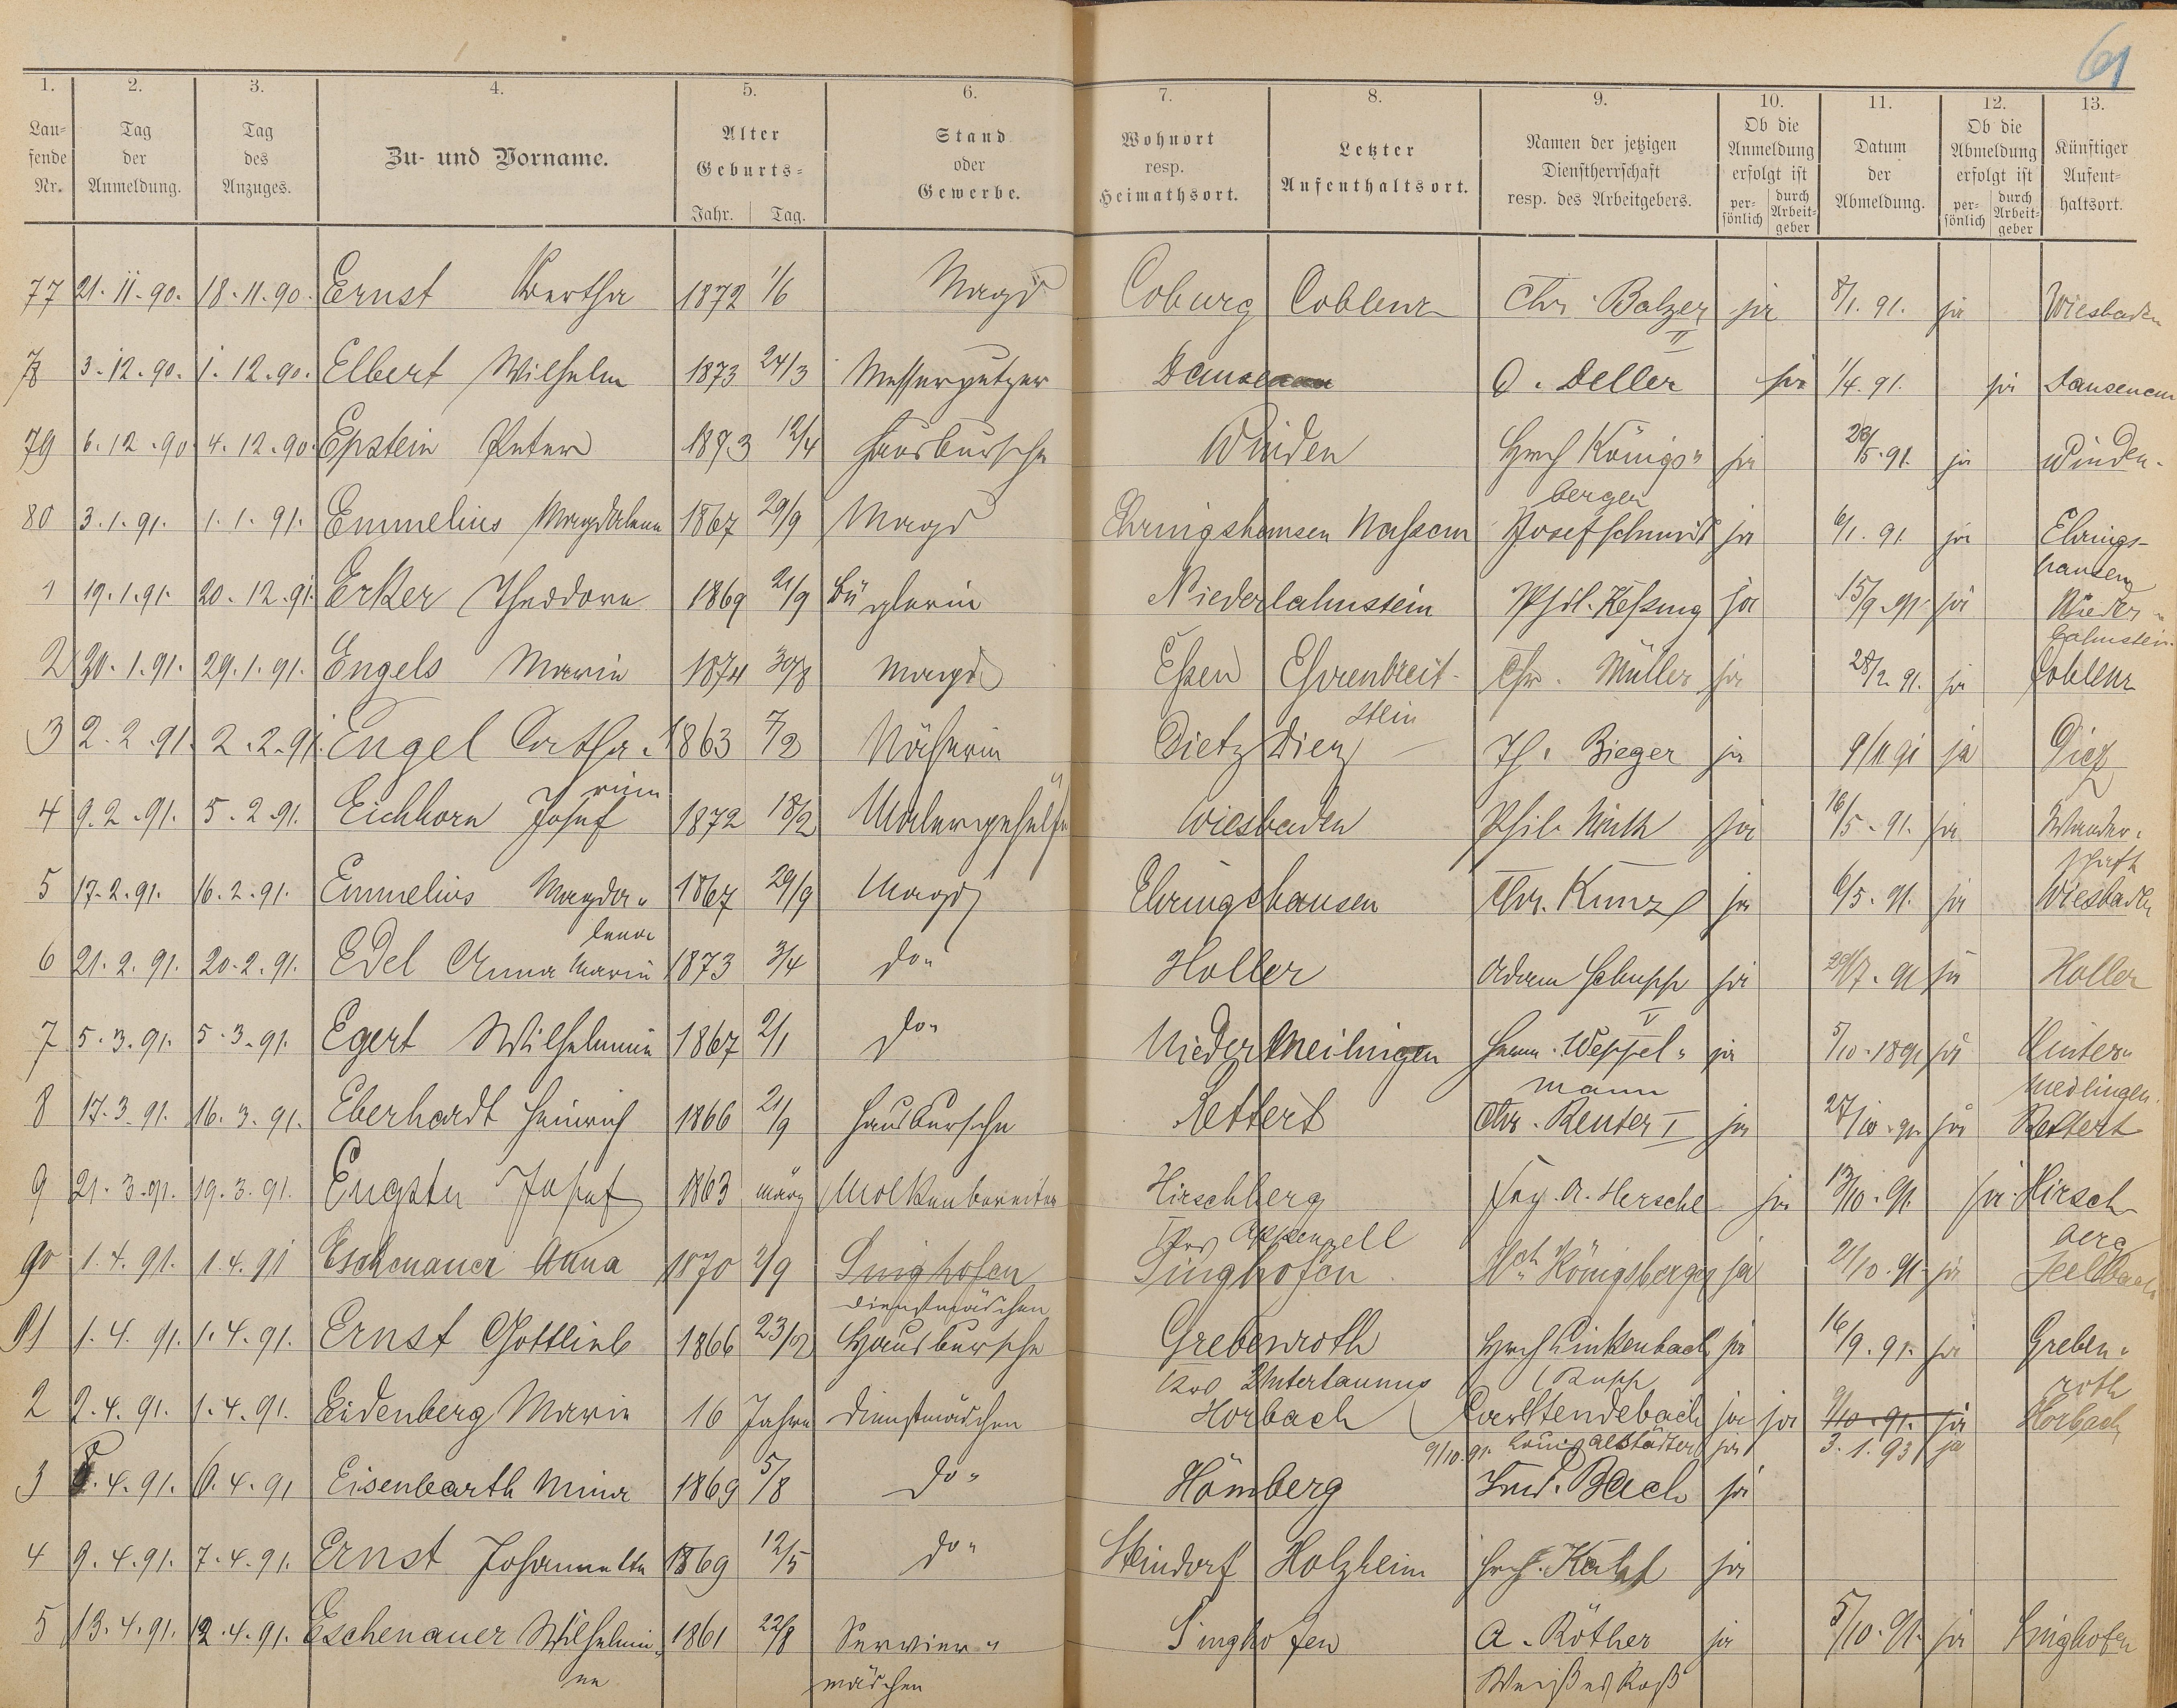 61
1. 2. 3. 4. 5. 6. 7. 8. 9. 10. 11. 12. 13.
Laufende Nr. Tag der Anmeldung. Tag des Anzuges. Zu- und Vorname. Alter Geburts= Jahr. Tag. Stand oder Gewerbe. Wohnort resp. Heimathsort. Letzter Aufenthaltsort. Namen der jetzigen Dienstherrschaft resp. des Arbeitgebers. Ob die Anmeldung erfolgt ist persönlich durch Arbeitgeber Datum der Abmeldung. Ob die Abmeldung erfolgt ist persönlich durch Arbeitgeber Künftiger Aufenthaltsort.
77 21.11.90. 18.11.90. Ernst Bertha 1872 1/6 Magd Coburg Coblenz Chr. Balzer II ja 8/1. 91. ja Wiesbaden
78 3.12.90. 1.12.90. Elbert Wilhelm 1873 24/3 Messerputzer Dausenau O. Deller ja 1/4. 91. ja Dausenau
79 6.12.90 4.12.90. Epstein Peter 1873 12/4 Hausbursche Winden Hrch Königs„ berger ja 26/5. 91. ja Winden.
80 3.1.91. 1.1.91. Emmelius Magdalena 1867 29/9 Magd Ehringshausen Nassau Josef Schmidt ja 6/1. 91 ja Ehrings-hausen
1 19.1.91. 20.12.91. Erker Theodora 1869 21/9 Büglerin Niederlahnstein Phil. Keßing ja 15/9. 91. ja Nieder„ lahnstein.
2 30.1.91. 29.1.91. Engels Maria 1874 30/8 Magd Eßen Ehrenbreit-stein Chr. Müller ja 28/2. 91. ja Coblenz
3 2.2.91. 2.2.91. Engel Catha„ rina 1863 7/2 Näherin Dietz Diez Th. Bieger ja 9/11 91 ja Diez
4 9.2.91. 5.2.91. Eichhorn Josef 1872 18/2 Malergehülfe Wiesbaden Phil. ja 16/5. 91. ja Wander„ schaft
5 17.2.91. 16.2.91. Emmelius Magda„ lena 1867 29/9 Magd Ehringshausen Chr. Kunz ja 6/5. 91. ja Wiesbaden
6 21.2.91. 20.2.91. Edel Anna Maria 1873 3/4 do„ Holler Adam Schupp V ja 29/7. 91 ja Holler
7 5.3.91. 5.3.91. Egert Wilhelmine 1867 2/1 do„ Niedermeilingen Herm. Weppel„ mann ja 5/10. 1891 ja meilingen.
8 17.3.91. 16.3.91. Eberhardt Heinrich 1866 21/9 Hausbursche Rettert Chr. Reuter I ja 27/10. 91. ja Rettert
9 21.3.91. 19.3.91. Engster Josef 1863 März Molkenbereiter Hirschberg Appenzell A. Hersche ja 13/10. 91. ja Hirschberg
90 1.4.91. 1.4.91 Eschenauer Anna 1870 2/9 Singhofen Dienstmädchen Singhofen Hch Königsberger ja 21/10. 91. ja Seelbach
91 1.4.91. 1.4.91. Ernst Gottlieb 1866 23/2 Hausbursche Grebenroth Krs Untertaunus Hrch Linkenbach ja 16/9. 91. ja Greben„ roth
2 2.4.91. 1.4.91. Eidenberg Maria 16 Jahre Dienstmädchen Horbach (Rupp Stendebach ja ja 9/10. 91. ja Horbach
9/10. 91. Louis Albstädter ja 3.1.93 ja
3 8.4.91. 6.4.91 Eisenbarth Mina 1869 5/8 do„ Hömberg Frd. Bach ja
4 9.4.91. 7.4.91. Ernst Johannette 1869 12/5 do„ Steindorf Holzheim Hrch. ja
5 13.4.91. 12.4.91. Eschenauer Wilhelmi„ ne 1861 22/8 Servier„ mädchen Singhofen A. Röther Weißes Roß ja 5/10. 91. ja Singhofen